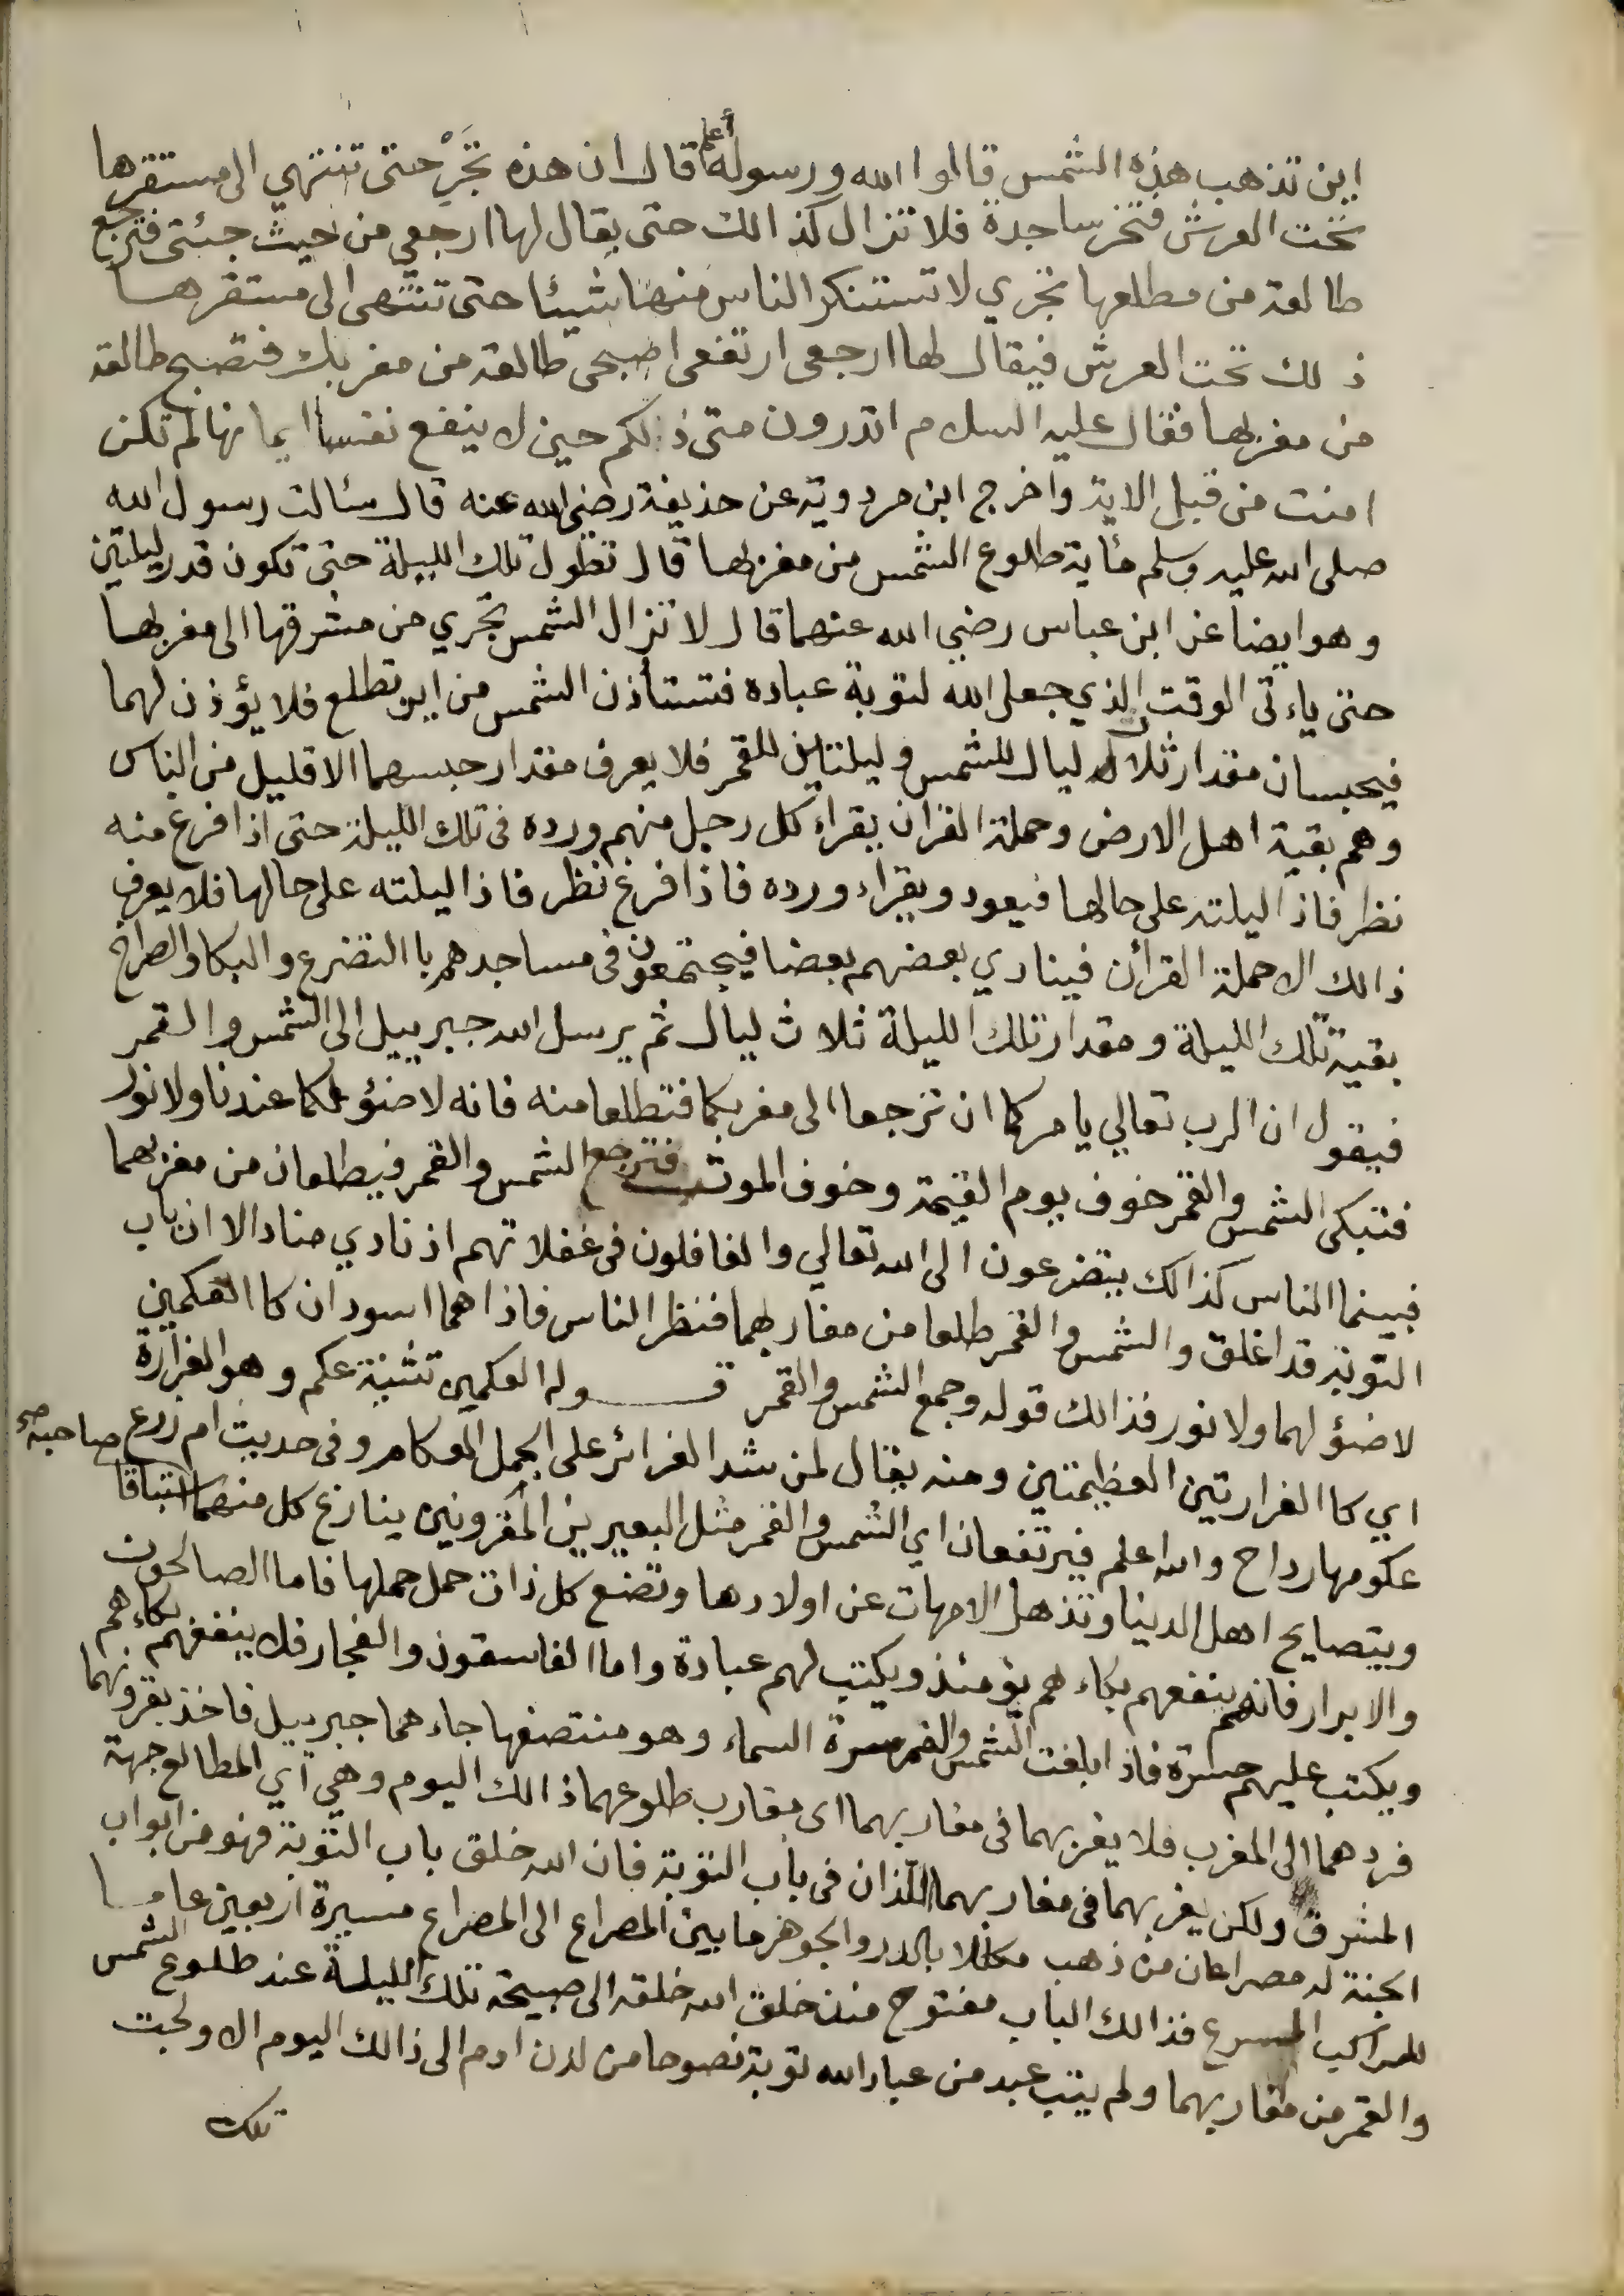 اين تذهب هذه الشمس قالوا الله ورسوله أعلم قال ان هذه تجر حتى تنتهي الى مستقرها
تحت العرش فتخر ساجدة فلا تزال كذالك حتى يقال لها ارجعي من حيث جئتى فترجع
طالعة من مطلعها تجري لا تستنكر الناس منها شيئا حتى تنتهى الى مستقرها
ذلك تحت العرش فيقال لها ارجعى ارتفعى اصبحى طالعة من مغربك فتصبح طالعة
من مغربها فقال عليه السلام اتدرون متى ذلكم حين لا ينفع نفسا ايمانها لم تكن
امنت من قبل الاية واخرج ابن مردوية عن حذيفة رضي الله عنه قال سئالت رسول الله
صلى الله عليه وسلم مأ ية طلوع الشمس من مغربها قال تطول تلك الليلة حتى تكون قدر ليلتين
وهو ايضا عن ابن عباس رضي الله عنهما قال لا تزال الشمس تجري من مشرقها الى مغربها
حتى ياءتى الوقت الذي جعل الله لتوبة عباده فتستأذن الشمس من اين تطلع فلا يؤذن لهما
فيحبسان مقدار ثلاث ليال للشمس وليلتاين للقمر فلا يعرف مقدار حبسهما الا قليل من الناس
وهم بقية اهل الارض وحملة القران يقراء كل رجل منهم ورده فى تلك الليلة حتى اذا فرغ منه
نظر فاذا ليلته على حالها فيعود ويقراء ورده فاذا فرغ نظر فاذا ليلته على حالها فلا يعرف
ذالك الا حملة القرأن فينادي بعضهم بعضا فيجتمعون فى مساجدهم باالتضرع والبكا والصراخ
بقية تلك الليلة ومقدار تلك الليلة ثلاث ليال ثم يرسل الله جبرييل الى الشمس والقمر
فيقول ان الرب تعالي يامركما ان ترجعا الى مغربكما فتطلعا منه فانه لا ضئو لكما عندنا ولا نور
فتبكى الشمس والقمر خوف يوم القيمة وخوف الموت فترجع الشمس والقمر فيطلعان من مغربهما
فبينما الناس كذالك يتضرعون الى الله تعالي والغافلون فى غفلاتهم اذ نادي مناد الا ان باب
التوبة قد اغلق والشمس والقمر طلعا من مغاربهما فنظر الناس فاذا هما اسودان كاالعكمين
لا ضئو لهما ولا نور فذالك قوله وجمع الشمس والقمر قــوله العكمين تثنية عكم وهو الغرارة
اي كاالغرارتين العظيمتين ومنه يقال لمن شد الغرائر على الجمل العكام وفى حديث ام زرع صاحبه صح
عكومها رداح والله اعلم فيرتفعان اي الشمس والقمر مثل البعيرين المقرونين ينازع كل منهما استباقا
ويتصايح اهل الدينا وتذهل الامهات عن اولادها وتضع كل ذات حمل حملها فاما الصالحون
والابرار فانهم ينفعهم بكاءهم يؤمئذ ويكتب لهم عبادة واما الفاسقون والفجار فلا ينفعهم بكاءهم
ويكتب عليهم حسرة فاذا بلغت الشمس والقمر سرة السماء وهو منتصفها جاءهما جبرييل فاخذ بقرونهما
فردهما الى المغرب فلا يغربهما فى مغاربهما اى مغارب طلوعهما ذالك اليوم وهي أي المطالع جهة
المشرق ولكن يغربهما فى مغاربهما اللذان فى باب التوبة فان الله خلق باب التوبة فهو من ابواب
الجنة له مصراعان من ذهب مكللا بالدر والجوهر ما بين المصراع الى المصراع مسيرة اربعين عاما
للراكب المسرع فذالك الباب مفتوح منذ خلق الله خلقه الى صبيحة تلك الليلة عند طلوع الشمس
والقمر من مغاربهما ولم يتب عبد من عباد الله توبة نصوحا من لدن ادم الى ذالك اليوم الا ولجت
تلك